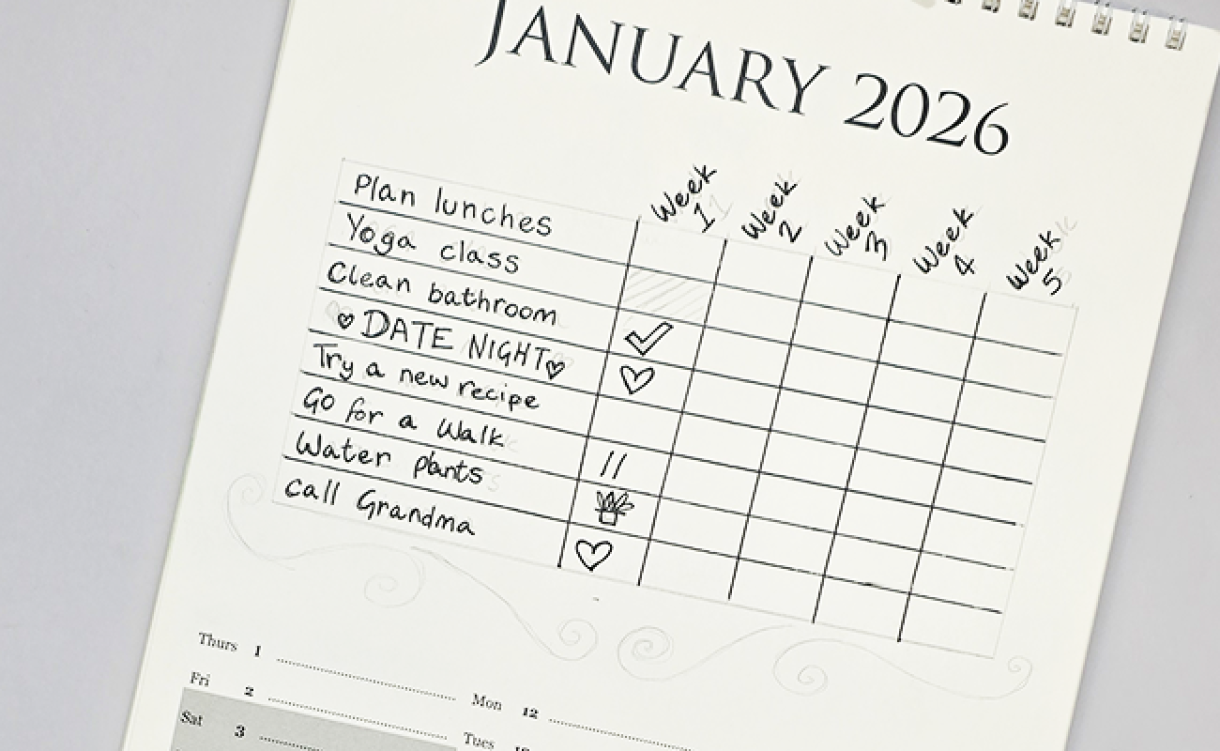 JANUARY 2026
Week 1
Week 2
Week 3
Week 4
Week 5
Plan lunches
Yoga class
Clean bathroom
DATE NIGHT
Try a new recipe
Go for a walk
Water plants
call Grandma
Thurs 1
Fri 2
Sat 3
Mon 12
Tues